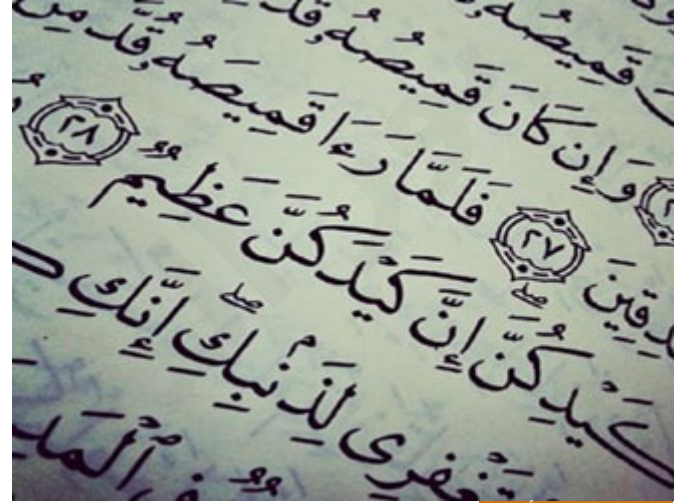 قَمِيصُهُۥ
وَإِن كَانَ قَمِيصُهُۥ قُدَّ
ـدِقِينَ ٢٧ فَلَمَّا رَءَا قَمِيصَهُۥ قُدَّ مِن
كَيْدِكُنَّ ۖ إِنَّ كَيْدَكُنَّ عَظِيمٌ ٢٨
ـتَغْفِرِى لِذَنۢبِكِ ۖ إِنَّكِ
ٱلْمَدِ